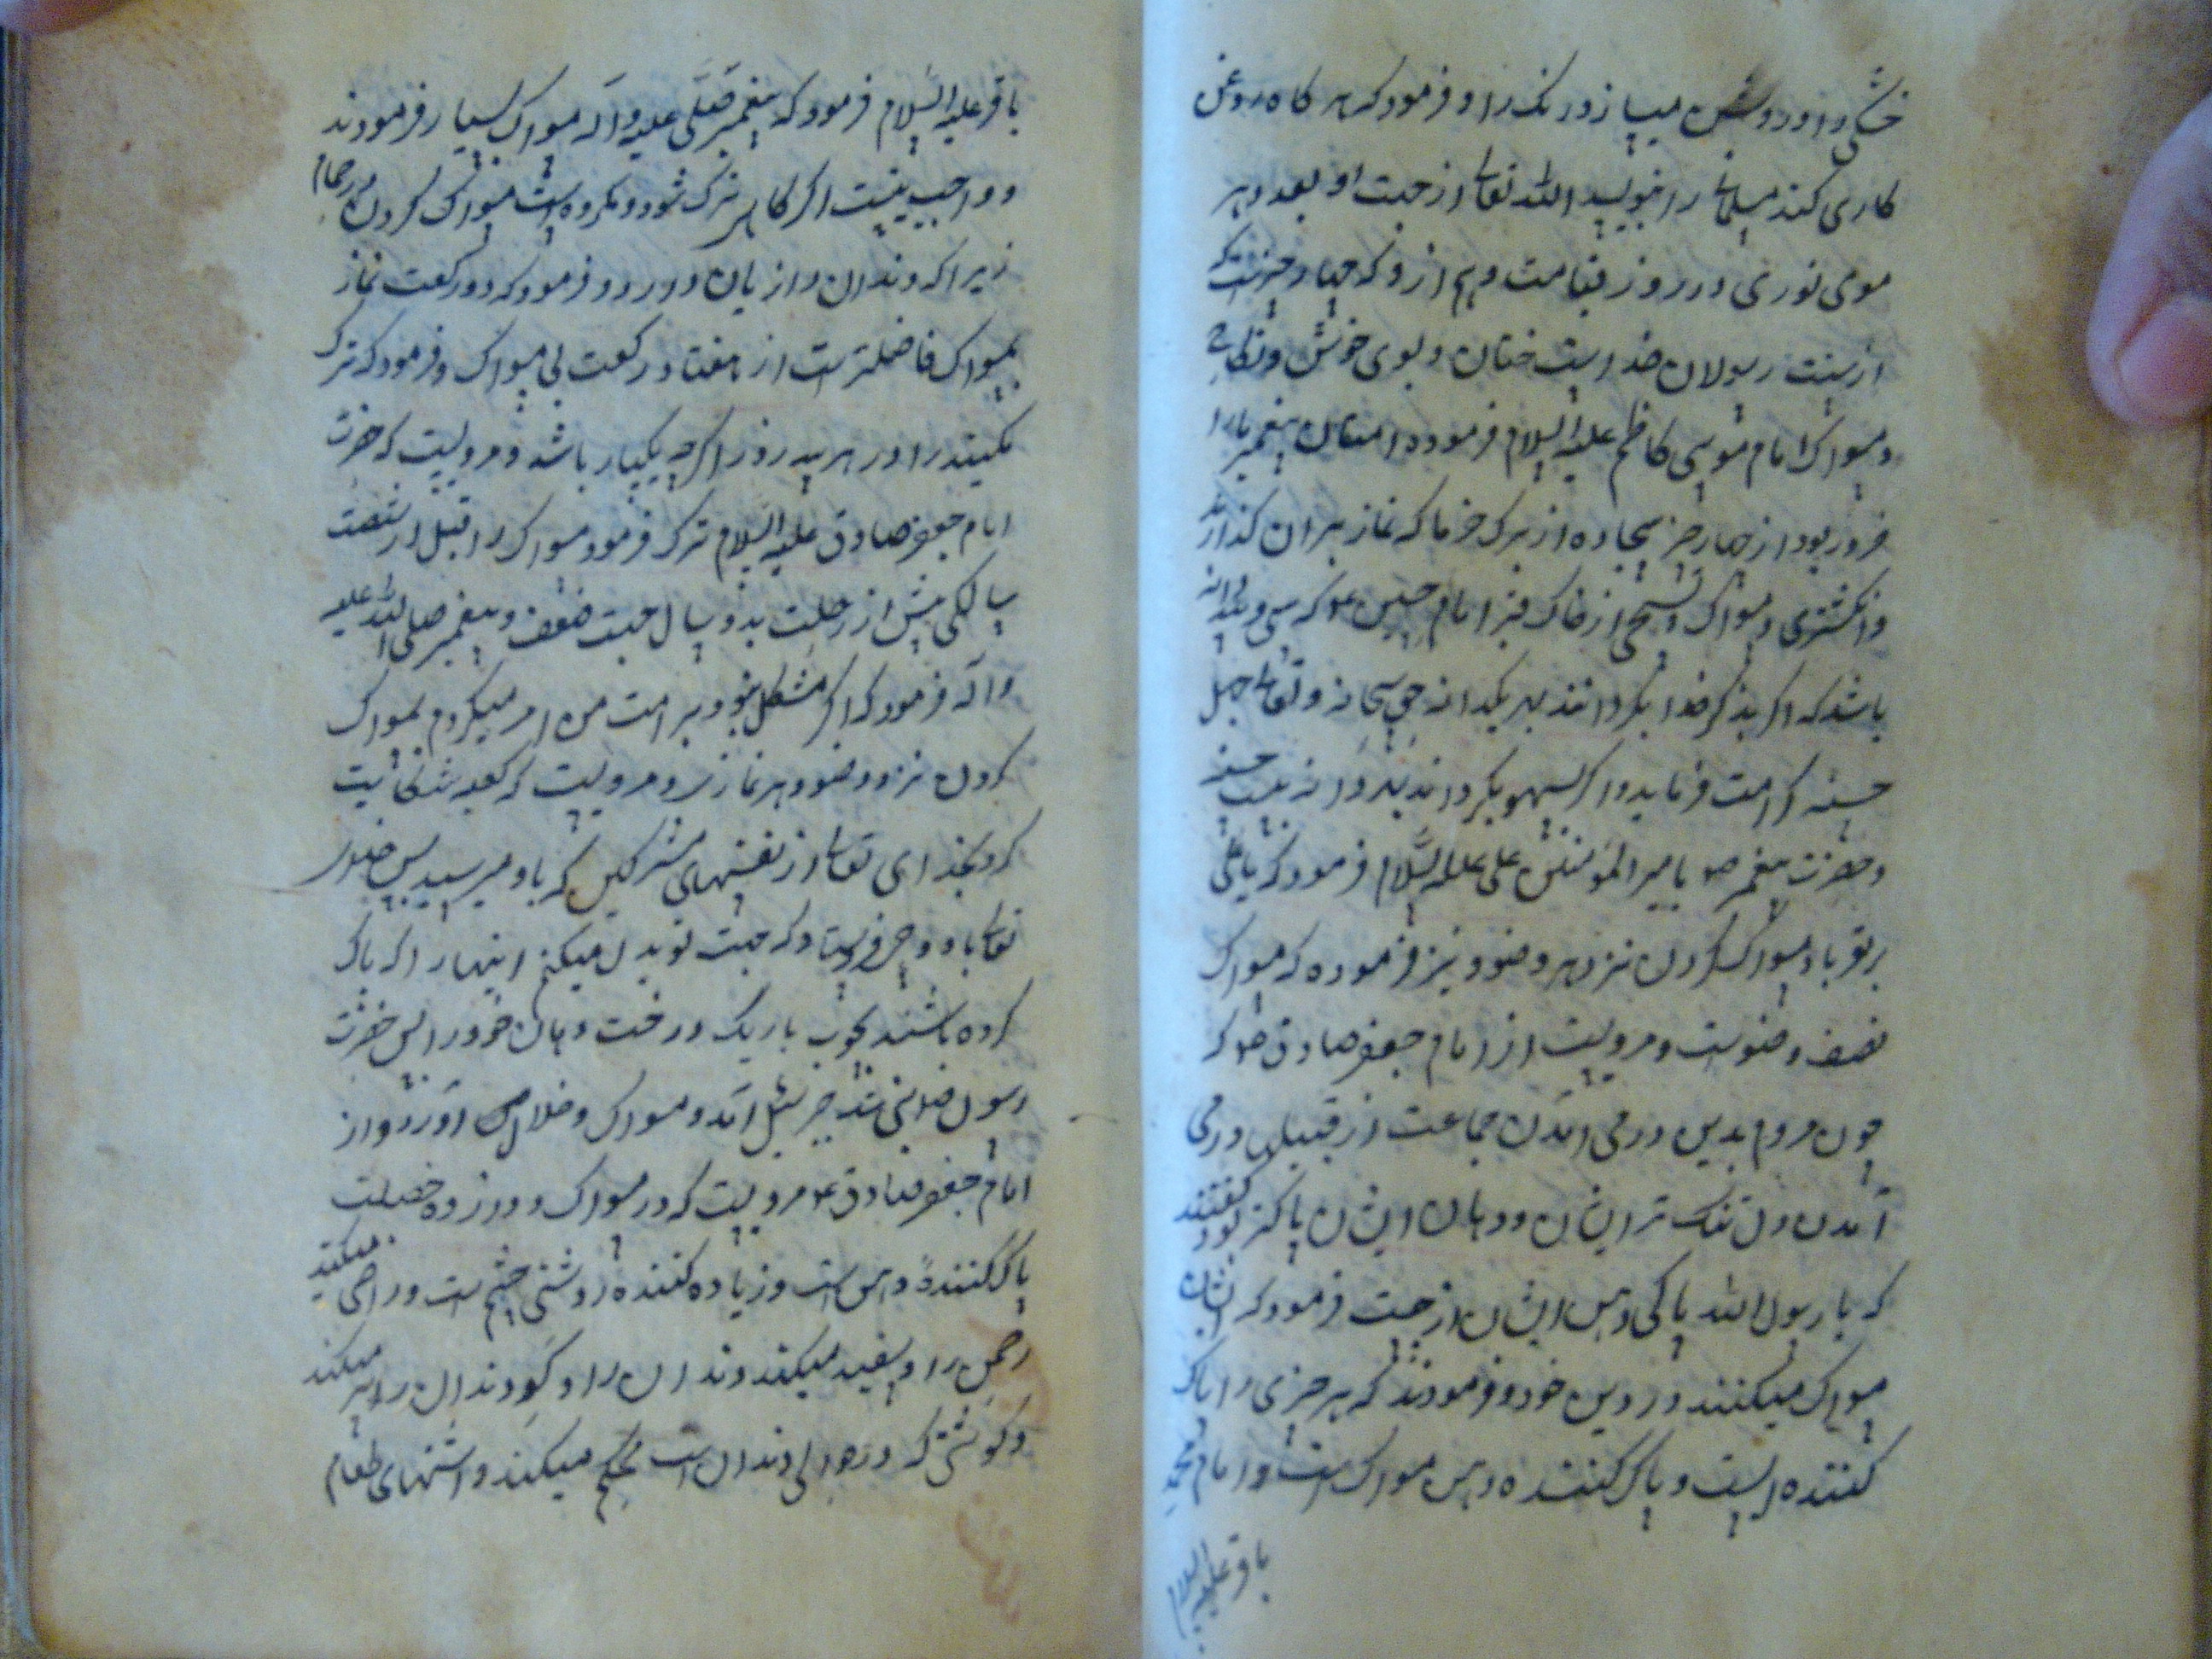 خشکی و او روشن میسازد رنک را و فرمود که هر کاه روغن
کاری کند مسلمانی را بنویسد الله تعالی از جهت او بعدد هر
موی نوری در روز قیامت و هم از و که چهار چیزست که
از سنت رسولان خداست ختان و بوی خوش و نکاح
و مسواک امام موسی کاظم علیه السلام فرموده
بود از چهار چیز سجاده از برک خرما که نماز بر ان کذارند
و انکشتری و مسواک و تسبحی از خاک قبر امام حسین ع که سی و سه دانه
باشد که اکر بذکر خدا بکردانند بهر یکدانه حق سبحانه و تعالی چهل
حسنه کرامت فرماید و اکر بسهو بکردانند بهر دانه بیست حسنه
و حضرت پیغمبر ص بامیر المؤمنین علی علیه السلام فرمود که یا علی
بر تو باد مسواک کردن نزد هر وضو و نیز فرموده که مسواک
نصف وضوست و مرویست از امام جعفر صادق ع که
چون مردم بدین در می امدن جماعت از قبیله در می
آمدن دل تنک تر ایشان و دهان ایشان پاکتر بود کفتند
که یا رسول الله پاکی دهن ایشان از چیست فرمود که ایشان
مسواک میکنند در دین خود و فرمودند که هر چیزی را پاک
کننده ایست و پاک کننده دهن مسواک است و امام محمد
باقر علیه السلام
باقر علیه السلام فرمود که پیغمبر صلی علیه و آله مسواک بسیار فرمودند
و واجب نیست اکر کاهی ترک شود و مکروه است مسواک کردن در حمام
زیرا که دندان را زیان دارد و فرمود که دو رکعت نماز
بمسواک فاضلترست از هفتاد رکعت بی مسواک و فرمود که ترک
نکنید را در هر سه روز اکرچه یکبار باشد و مرویست که حضرت
امام جعفر صادق علیه السلام ترک فرمود مسواک را قبل از شصت
سالکی پیش از رحلت بدو سال جهت ضعف و پیغمبر صلی الله علیه
و آله فرمود که اکر مشکل نبود بر امت من امر میکردم بمسواک
کردن نزد وضو و هر نماز و مرویست که کعبه شکایت
کرد بخدای تعالی از نفسهای مشرکین که باو میرسید پس خدای
تعالی باو وحی فرستاد که جهت تو بدل میکنم اینها را که پاک
کرده باشند بچوب باریک درخت دهان خود را پس حضرت
رسول جبرئیل آمد و مسواک و خلال آورد و از
امام جعفر صادق ع مرویست که در مسواک دوازده خصلت
پاک کننده دهن است و زیاده کننده روشنی چشم است و راضی میکند
رحمن را و سفید میکند دندان را و کو دندان را میکند
و کوشتی که در حوالی دندان است محکم میکند و اشتهای طعام